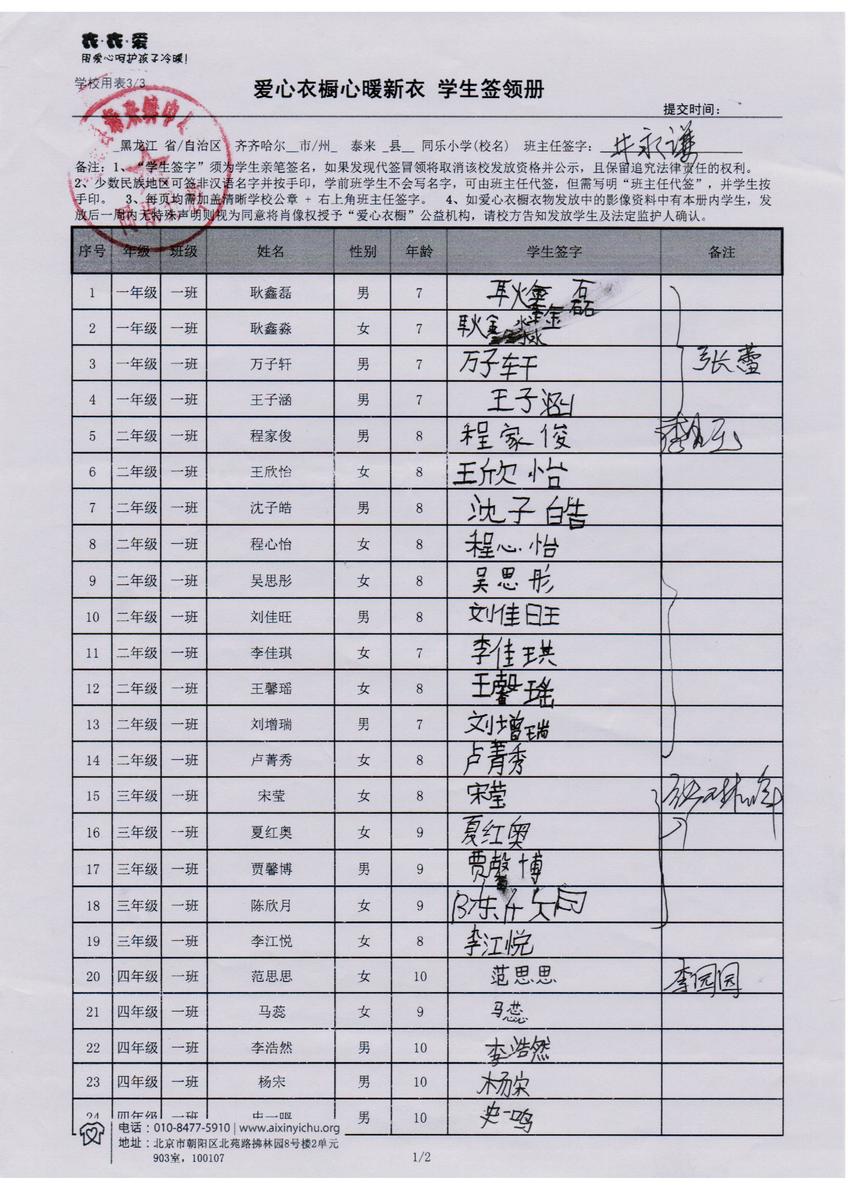 衣·衣·爱
用爱心呵护孩子冷暖!
学校用表3/3
爱心衣橱心暖新衣 学生签领册
提交时间:
_黑龙江_省/自治区_齐齐哈尔__市/州_ 泰来_县__ 同乐小学(校名) 班主任签字: 井永谦
备注: 1、“学生签字”须为学生亲笔签名,如果发现代签冒领将取消该校发放资格并公示,且保留追究法律责任的权利。
2、少数民族地区可签非汉语名字并按手印,学前班学生不会写名字,可由班主任代签,但需写明“班主任代签”,并学生按
手印。 3、每页均需加盖清晰学校公章 + 右上角班主任签字。 4、如爱心衣橱衣物发放中的影像资料中有本册内学生,发
放后一周内无特殊声明则视为同意将肖像权授予“爱心衣橱”公益机构,请校方告知发放学生及法定监护人确认。
序号 年级 班级 姓名 性别 年龄 学生签字 备注
1 一年级 一班 耿鑫磊 男 7 耿鑫磊
2 一年级 一班 耿鑫淼 女 7 耿鑫淼
3 一年级 一班 万子轩 男 7 万子轩 张蕾
4 一年级 一班 王子涵 男 7 王子涵
5 二年级 一班 程家俊 男 8 程家俊
6 二年级 一班 王欣怡 女 8 王欣怡
7 二年级 一班 沈子皓 男 8 沈子皓
8 二年级 一班 程心怡 女 8 程心怡
9 二年级 一班 吴思彤 女 8 吴思彤
10 二年级 一班 刘佳旺 男 8 刘佳旺
11 二年级 一班 李佳琪 女 7 李佳琪
12 二年级 一班 王馨瑶 女 8 王馨瑶
13 二年级 一班 刘增瑞 男 7 刘增瑞
14 二年级 一班 卢菁秀 女 8 卢菁秀
15 三年级 一班 宋莹 女 8 宋莹
16 三年级 一班 夏红奥 女 9 夏红奥
17 三年级 一班 贾馨博 男 9 贾馨博
18 三年级 一班 陈欣月 女 9 陈欣月
19 三年级 一班 李江悦 女 8 李江悦
20 四年级 一班 范思思 女 10 范思思 李园园
21 四年级 一班 马蕊 女 9 马蕊
22 四年级 一班 李浩然 男 10 李浩然
23 四年级 一班 杨宋 男 10 杨宋
24 四年级 一班 史一鸣 男 10 史一鸣
电话:010-8477-5910 | www.aixinyichu.org
地址:北京市朝阳区北苑路拂林园8号楼2单元
903室,100107
1/2